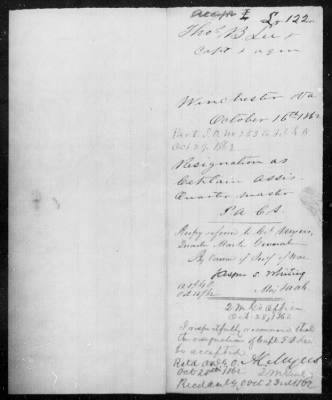 L 122
Thos. B Lee
Capt & aqm
Winchester Va
October 16th 1862
Oct 29. 1862
Resignation as
Captain Assis.
Quarter master
P. A. C. S.
Resply referred to Col Myers,
Quarter Mast General
By Comd of Secy of War
Jasper S. Whiting
Maj &aag
Q M Gs Office
Oct 28, 1862
I respectfully recommend that
the resignation of Capt Lee
be accepted
A C Myers
Oct 20th 1862
Recd Oct 23rd 1862